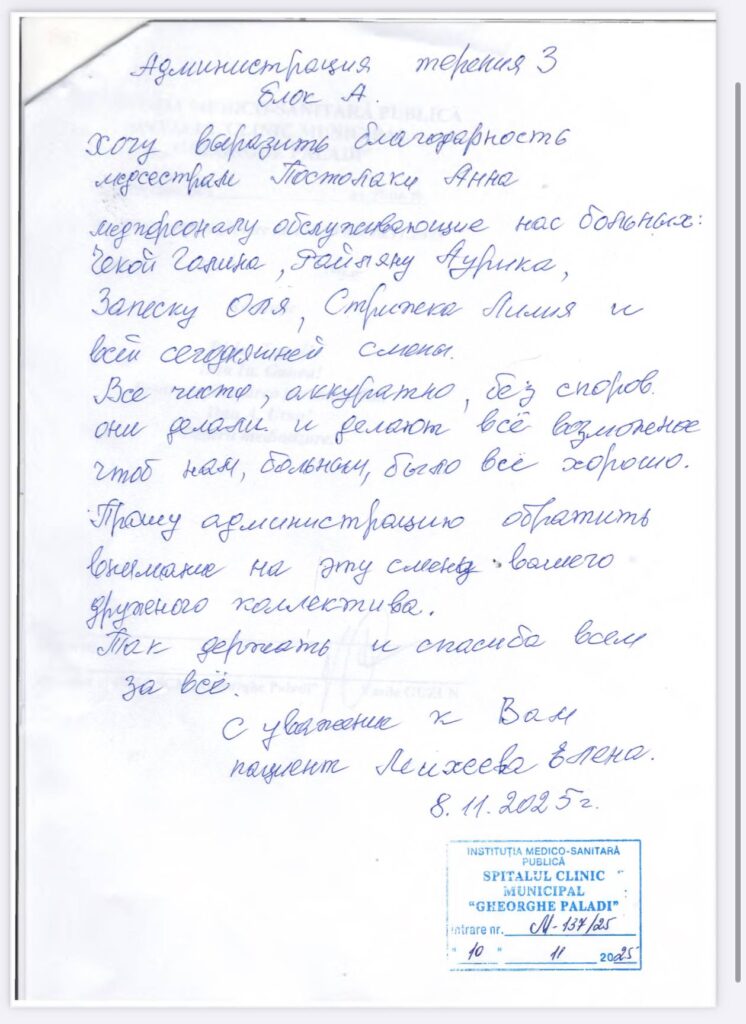 Администрация терапия 3
блок А.
хочу выразить благодарность
медсестрам Постолаки Анна
медперсоналу обслуживающие нас больных:
Чекой Галина, Гайпяну Аурика,
Запеску Оля, Стрижека Лилия и
всей сегодняшней смены.
Все чисто, аккуратно, без споров.
они делали и делают всё возможное
чтоб нам, больным, было всё хорошо.
Прошу администрацию обратить
внимание на эту смену вашего
дружного коллектива.
Так держать и спасиба всем
за всё.
С уважение к Вам
пациент Михеева Елена.
8.11.2025г.
INSTITUȚIA MEDICO-SANITARĂ
PUBLICĂ
SPITALUL CLINIC
MUNICIPAL
"GHEORGHE PALADI"
Intrare nr. M-137/25
" 10 " 11 2025